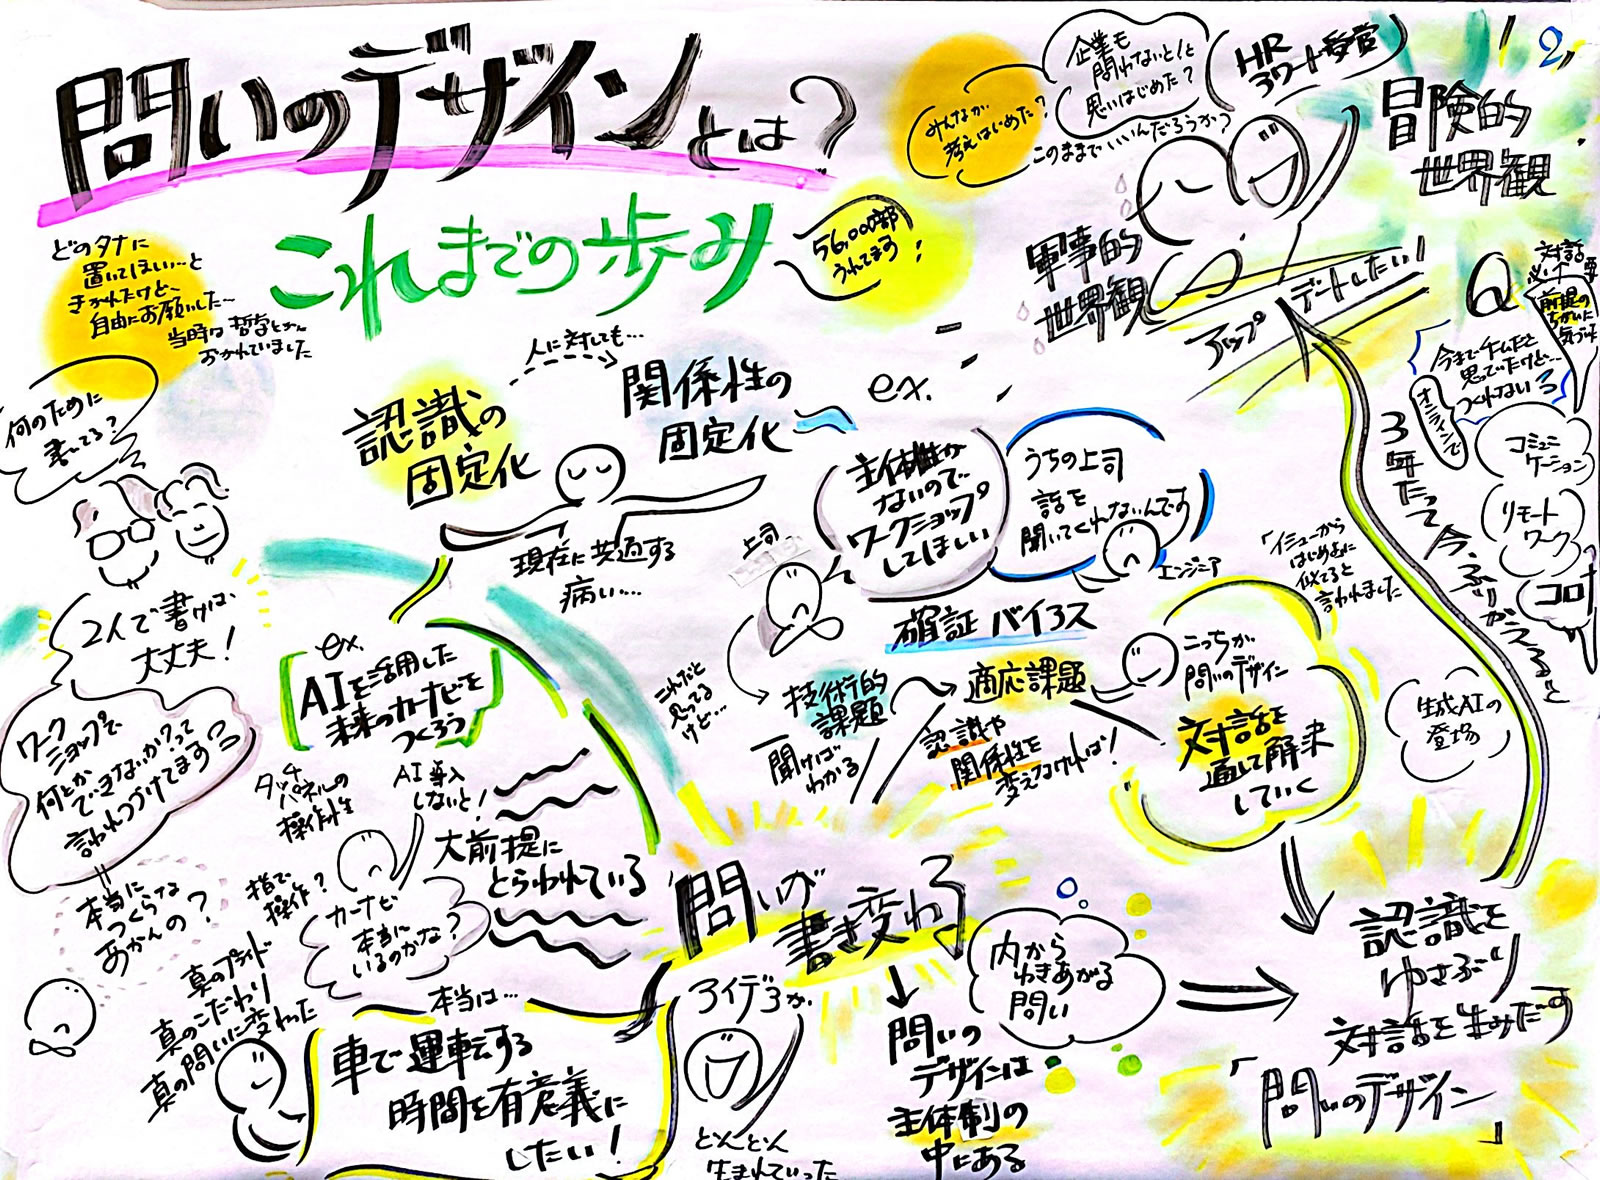 問いのデザインとは?
これまでの歩み
56,000部
うれてます!
どのタナに
置いてほしい…と
きかれたけど、
自由にお願いした…
当時は哲学とかに
おかれていました
何のために
書いてる?
2人で書けば、
大丈夫!
ワーク
ショップで
何とか
できないか?って
言われつづけてます
本当に
つくらな
あかんの?
認識の
固定化
人に対しても…
関係性の
固定化
現在に共通する
病い…
ex.
AIを活用した
未来のカーナビを
つくろう
タッチ
パネルの
操作性
AI導入
しないと!
指で
操作?
カーナビ
本当に
いるのかな?
大前提に
とらわれている
真のプライド
真のこだわり
真の問いに変わった
本当は…
車で運転する
時間を有意義に
したい!
ex.
主体性が
ないので
ワークショップ
してほしい
上司
うちの上司
話を
聞いてくれないんです
エンジニア
確証バイアス
これだと
思ってる
けど…
技術的
課題
聞けば
わかる
適応課題
認識や
関係性を
変えなければ!
こっちが
問いのデザイン
対話を
通して解決
していく
問いが
書き変わる
アイデアが
どんどん
生まれていった
問いの
デザインは
主体制の
中にある
内から
わきあがる
問い
認識を
ゆさぶり
対話を生みだす
「問いのデザイン」
みんなが
考えはじめた?
企業も
問わないと!と
思いはじめた?
このままでいいんだろうか?
HR
アワード受賞
2,
冒険的
世界観
軍事的
世界観
アップデートしたい!
Q
対話
必要
前提の
ちがいに
気づいた
今までチームだと
思っていたけど…
つくれない
オンラインで
コミュニ
ケーション
リモート
ワーク
コロナ
3年たって今、ふりかえると
「イミューから
はじめよに
似てると
言われました
生成AIの
登場